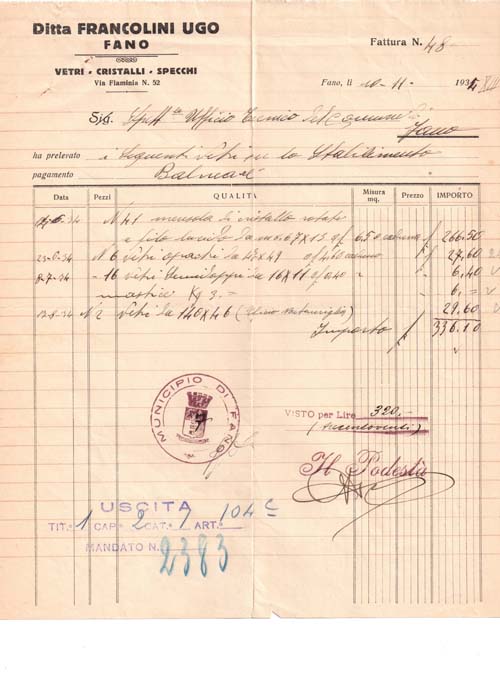 Ditta FRANCOLINI UGO
FANO
VETRI - CRISTALLI - SPECCHI
Via Flaminia N. 52
Fattura N. 48
Fano, li 10-11- 1934 XIII
Sig. Spett. Ufficio Tecnico del Comune di
Fano
ha prelevato i seguenti vetri per lo Stabilimento
pagamento Balneare
Data Pezzi QUALITÀ Misura mq. Prezzo IMPORTO
N 41 mensola di cristallo
a filo lucido da 0.67x13 6.50 caduna £ 266.50
N 6 vetri opachi da 47x49 27.60
8-7-34 16 vetri 16x11 0,40 6,40
mastice Kg 3.- 6,-
N 2 vetri da 146x46 29.60
Importo £ 336.10
MUNICIPIO DI FANO
VISTO per Lire 320,-
(trecentoventi)
Il Podestà
USCITA
TIT. 1 CAP. 2 CAT. 7 ART. 104 c
MANDATO N. 2383